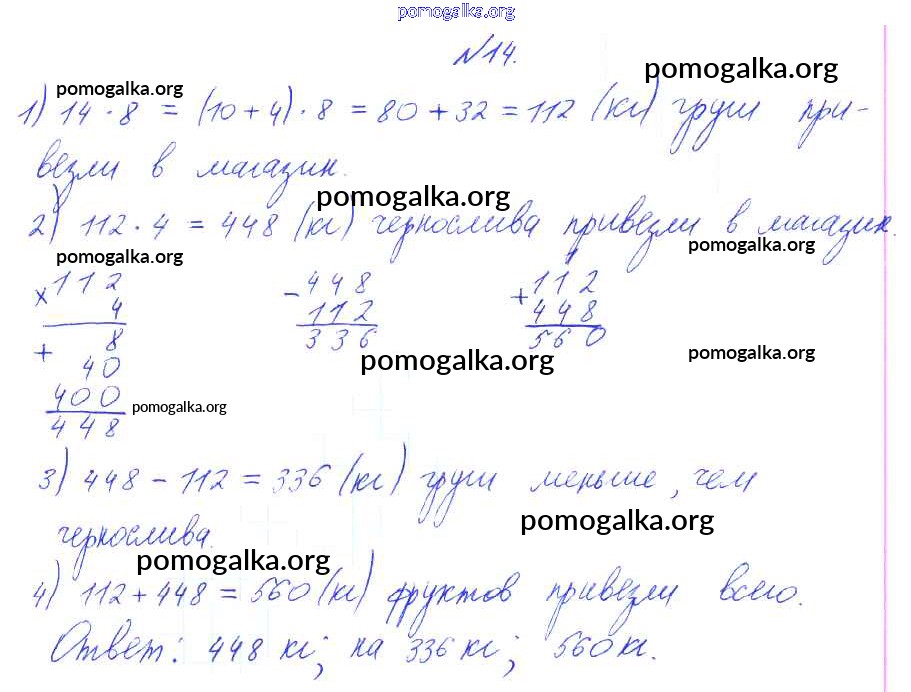 pomogalka.org
№14.
pomogalka.org
pomogalka.org
1) 14 · 8 = (10 + 4) · 8 = 80 + 32 = 112 (кг) груш при-
везли в магазин.
pomogalka.org
2) 112 · 4 = 448 (кг) чернослива привезли в магазин.
pomogalka.org
pomogalka.org
× 112 − 448 + 112
4 112 448
+ 8 336 560
40
pomogalka.org
pomogalka.org
400
pomogalka.org
448
3) 448 − 112 = 336 (кг) груш меньше, чем
чернослива.
pomogalka.org
pomogalka.org
4) 112 + 448 = 560 (кг) фруктов привезли всего.
Ответ: 448 кг; на 336 кг; 560 кг.